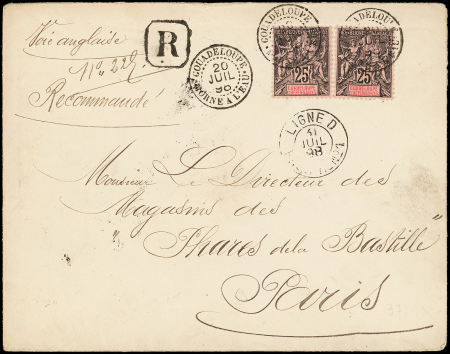 Voie anglaise
No 227
Recommandé
R
GUADELOUPE
20
JUIL
98
MORNE A L'EAU
GUADELOUPE
GUADELOUPE
25
25
LIGNE D
31
JUIL
98
Monsieur Le Directeur des
Magasins des
"Phares de la Bastille"
Paris